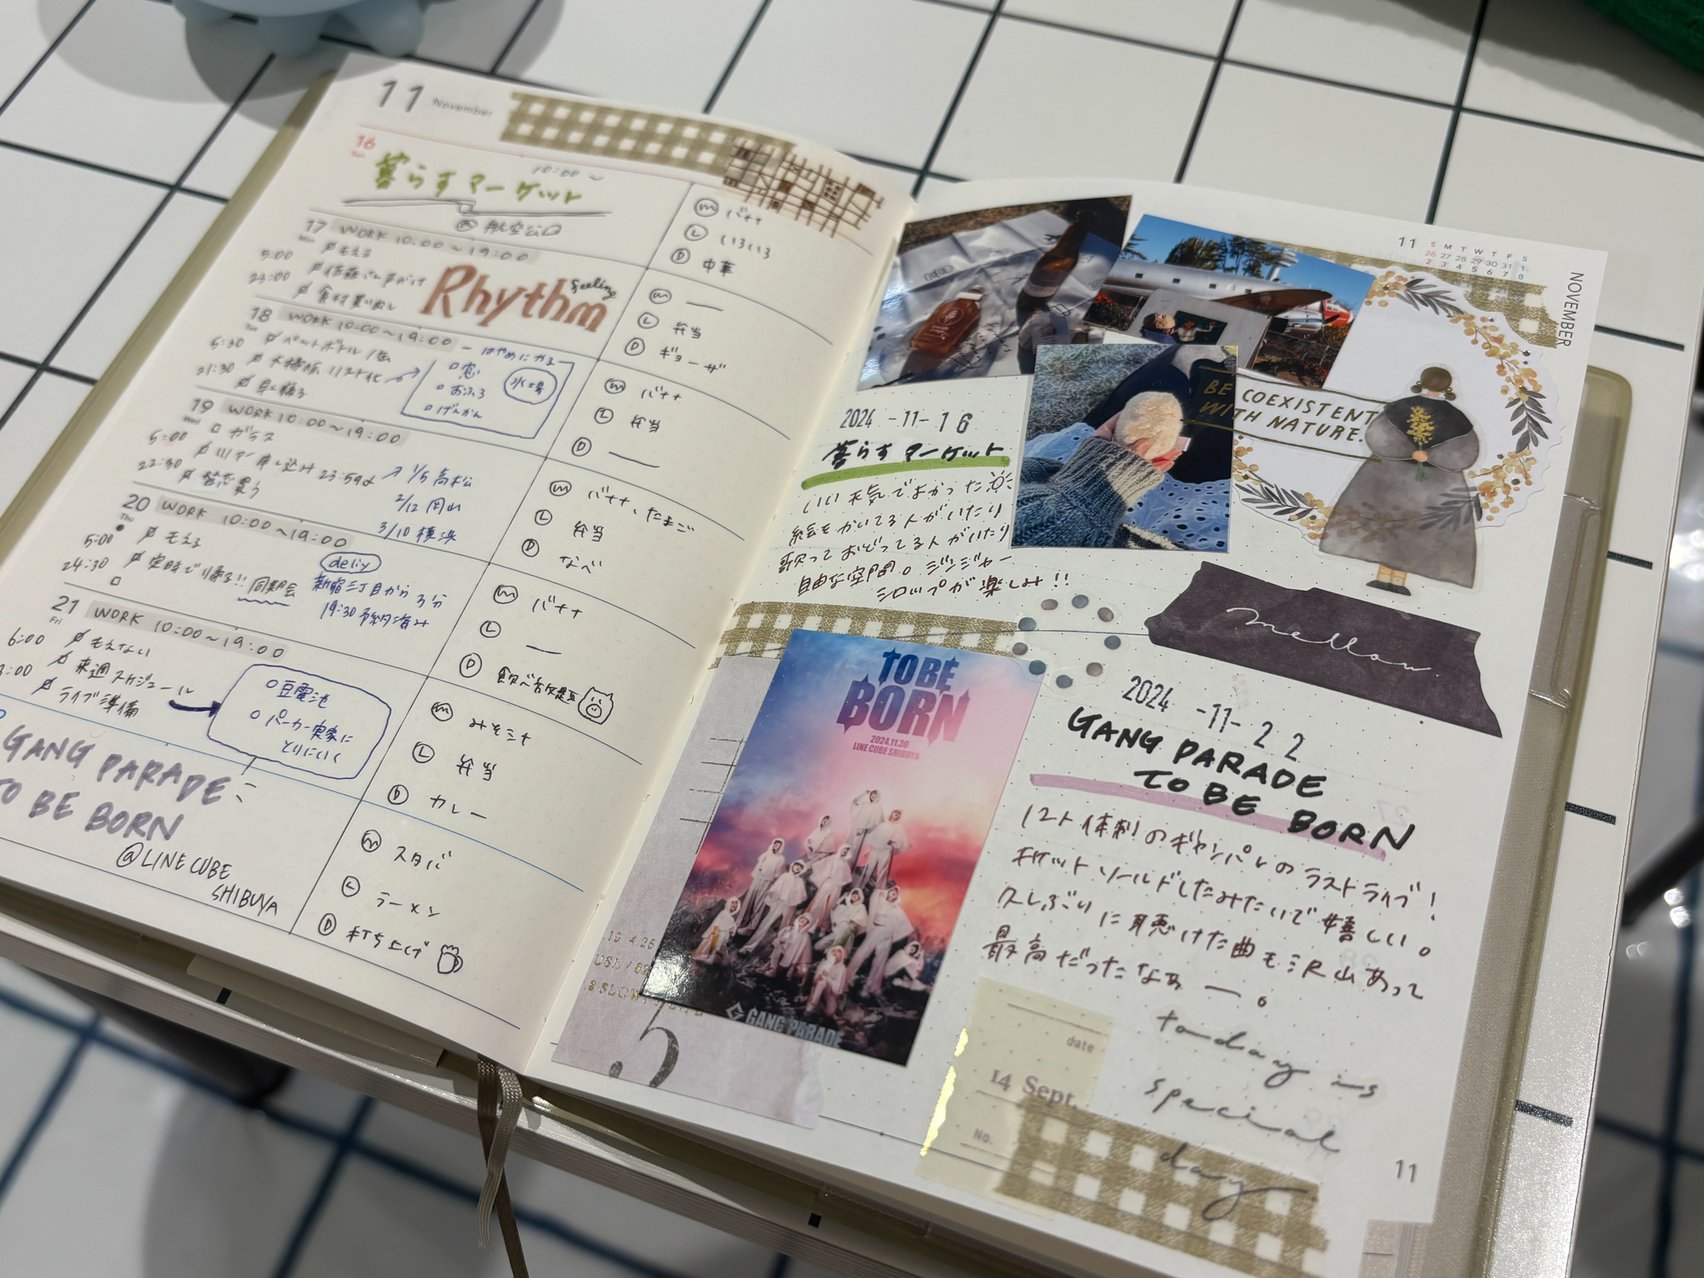 11 November
16
Sun
10:00~
暮らすマーケット
@ 航空公園
17 WORK 10:00~19:00
Mon
もえる
5:00
23:00
食材買い出し
Rhythm
feeling
18 WORK 10:00~19:00
Tue
5:30 ペットボトル
21:30 大掃除リスト化
早く寝る
はやめにやる
窓
おふろ
げんかん
19 WORK 10:00~19:00
Wed
ガラス
5:00 ツアー申し込み 23:59迄
22:30
1/5 高松
2/12 岡山
3/10 横浜
20 WORK 10:00~19:00
Thu
5:00 もえる
24:30 定時で帰る!! 同期会
deliy
新宿三丁目から3分
19:30 予約済み
21 WORK 10:00~19:00
Fri
6:00 もえない
来週スケジュール
ライブ準備
豆電池
パーカー実家に
とりにいく
GANG PARADE
TO BE BORN
@LINE CUBE
SHIBUYA
M バナナ
L いろいろ
D 中華
M —
L 弁当
D ギョーザ
M バナナ
L 弁当
D —
M バナナ、たまご
L 弁当
D なべ
M バナナ
L —
D 飲べ放題
M みそ汁
L 弁当
D カレー
M スタバ
L ラーメン
D 打ち上げ
11 S M T W T F S
26 27 28 29 30 31 1
2 3 4 5 6 7 8
NOVEMBER
BE COEXISTENT
WITH NATURE.
2024 -11- 16
暮らすマーケット
いい天気でよかった
絵をかいてる人がいたり
歌っておどってる人がいたり
自由な空間。ジンジャー
シロップが楽しみ!!
mellow
TO BE
BORN
2024.11.30
LINE CUBE SHIBUYA
GANG PARADE
2024 -11- 22
GANG PARADE
TO BE BORN
12人体制のギャンパレのラストライブ!
チケットソールドしたみたいで嬉しい。
久しぶりに聴けた曲も沢山あって
最高だったなぁー。
5
date
14 Sept.
No.
today is
special
day
11